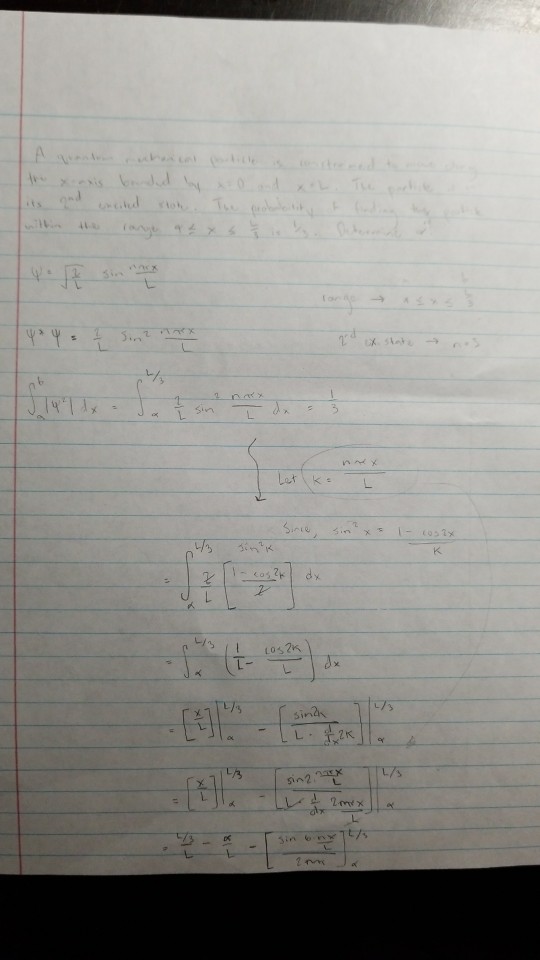 A quantum mechanical particle is constrained to move along
the x-axis bounded by x=0 and x=L. The particle is
its 2nd excited state. The probability of finding the particle
within the range α ≤ x ≤ L/3 is 1/3. Determine α
ψ = √(2/L) sin nπx/L
range → α ≤ x ≤ L/3
ψ*ψ = 2/L sin² nπx/L
2nd ex. state → n=3
∫_a^b |ψ²| dx = ∫_α^{L/3} 2/L sin² nπx/L dx = 1/3
Let K = nπx/L
Since, sin²x = 1 - cos2x/K
sin²K
= ∫_α^{L/3} 2/L [1 - cos2K/2] dx
= ∫_α^{L/3} (1/L - cos2K/L) dx
= [x/L]|_α^{L/3} - [sin2K/L · d/dx 2K]|_α^{L/3}
= [x/L]|_α^{L/3} - [sin2·nπx/L / L · d/dx 2nπx/L]|_α^{L/3}
= L/3/L - α/L - [sin 6πx/L / 2πn]_α^{L/3}